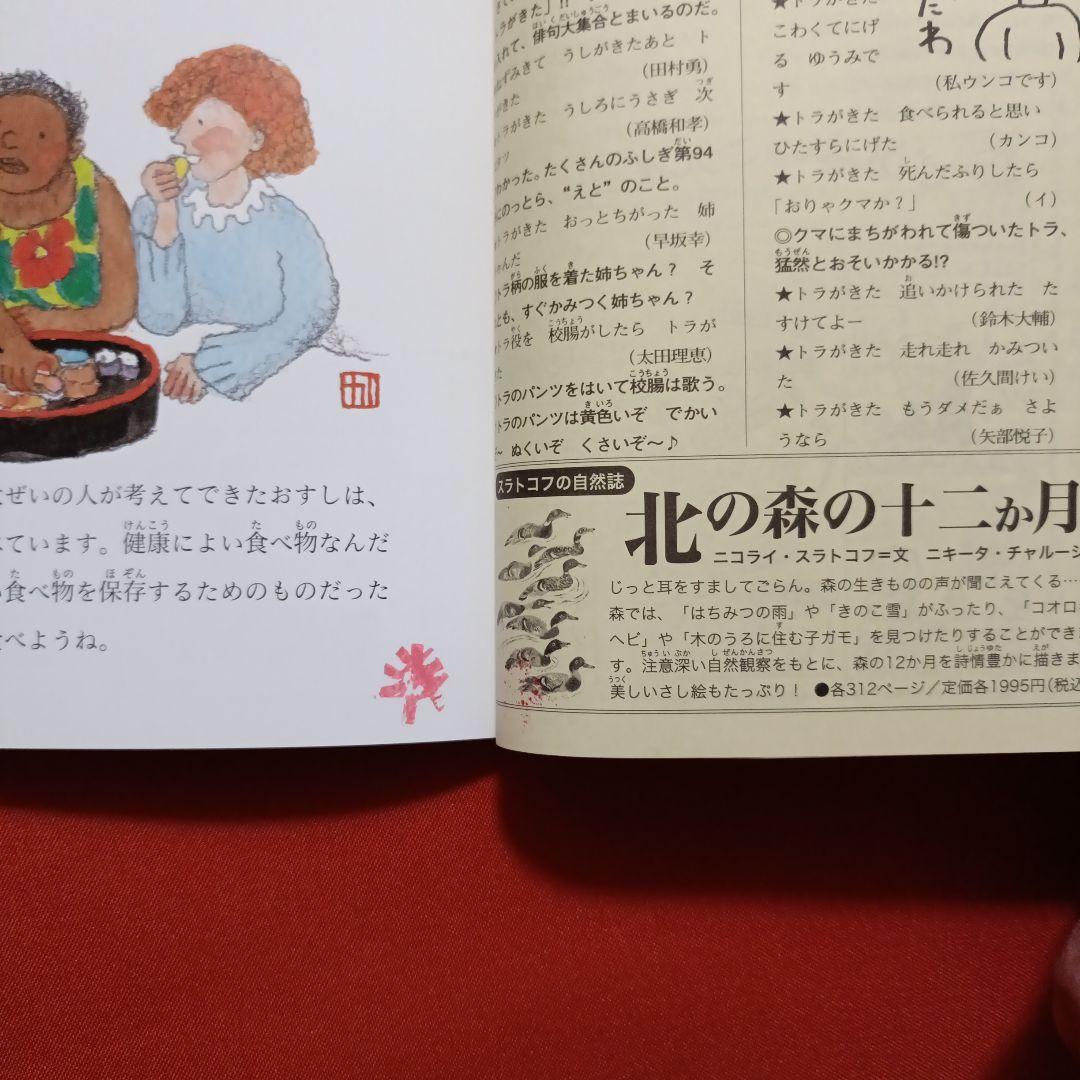 ぜいの人が考えてできたおすしは、
ています。健康によい食べ物なんだ
食べ物を保存するためのものだった
べようね。
ラがきた」!!
れて、俳句大集合とまいるのだ。
ずみきて　うしがきたあと　ト
がきた
（田村勇）
トラがきた　うしろにうさぎ　次
（高橋和孝）
わかった。たくさんのふしぎ第94
にのっとら、“えと”のこと。
トラがきた　おっとちがった　姉
ゃんだ
（早坂幸）
トラ柄の服を着た姉ちゃん？　そ
とも、すぐかみつく姉ちゃん？
トラ役を　校腸がしたら　トラが
た
（太田理恵）
トラのパンツをはいて校腸は歌う。
トラのパンツは黄色いぞ　でかい
〜　ぬくいぞ　くさいぞ〜♪
たわ
★トラがきた
こわくてにげ
る　ゆうみで
す
（私ウンコです）
★トラがきた　食べられると思い
ひたすらにげた
（カンコ）
★トラがきた　死んだふりしたら
「おりゃクマか？」
（イ）
◎クマにまちがわれて傷ついたトラ、
猛然とおそいかかる!?
★トラがきた　追いかけられた　た
すけてよー
（鈴木大輔）
★トラがきた　走れ走れ　かみつい
た
（佐久間けい）
★トラがきた　もうダメだぁ　さよ
うなら
（矢部悦子）
スラトコフの自然誌
北の森の十二か月
ニコライ・スラトコフ＝文　ニキータ・チャルーシ
じっと耳をすましてごらん。森の生きものの声が聞こえてくる…
森では、「はちみつの雨」や「きのこ雪」がふったり、「コオロ
ヘビ」や「木のうろに住む子ガモ」を見つけたりすることができ
す。注意深い自然観察をもとに、森の12か月を詩情豊かに描きま
美しいさし絵もたっぷり！　●各312ページ／定価各1995円（税込